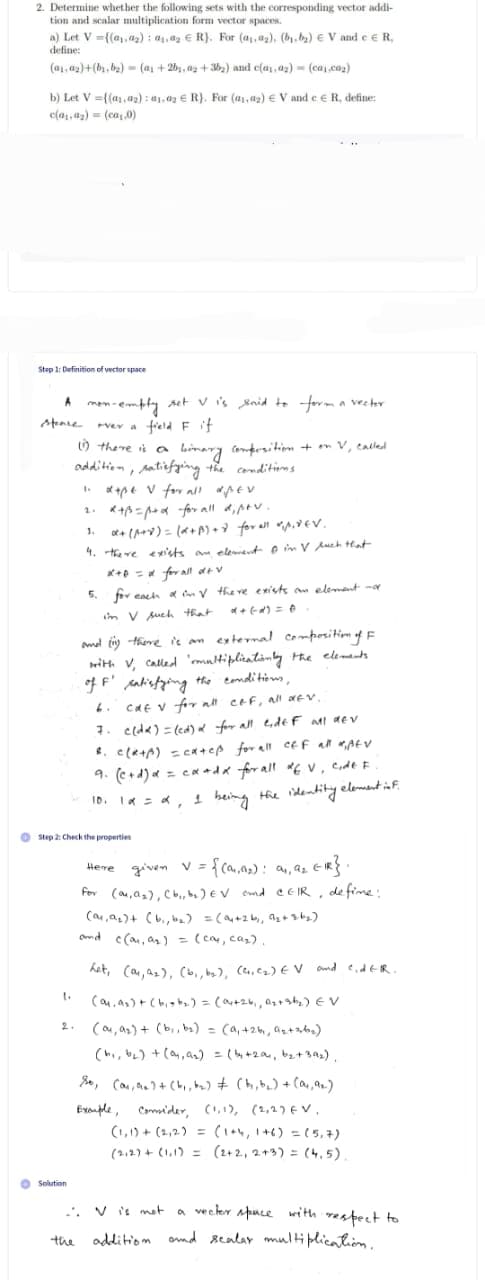 2. Determine whether the following sets with the corresponding vector addi-
tion and scalar multiplication form vector spaces.
a) Let V ={(a₁,a₂) : a₁, a₂ ∈ R}. For (a₁,a₂), (b₁,b₂) ∈ V and c ∈ R,
define:
(a₁,a₂)+(b₁,b₂) = (a₁ + 2b₁, a₂ + 3b₂) and c(a₁,a₂) = (ca₁,ca₂)
b) Let V ={(a₁,a₂) : a₁, a₂ ∈ R}. For (a₁,a₂) ∈ V and c ∈ R, define:
c(a₁,a₂) = (ca₁,0)
Step 1: Definition of vector space
A non-empty set V is said to form a vector
space over a field F if
(i) there is a binary composition + on V, called
addition, satisfying the conditions
1. α+β∈ V for all α,β∈V
2. α+β=β+α for all α,β∈V.
3. α+(β+γ) = (α+β)+γ for all α,β,γ∈V.
4. there exists an element θ in V such that
α+θ = α for all α∈V
5. for each α in V there exists an element -α
in V such that α+(-α) = θ.
and (ii) there is an external composition of F
with V, called 'multiplication by the elements
of F' satisfying the conditions,
6. cα∈V for all c∈F, all α∈V.
7. c(dα) = (cd)α for all c,d∈F all α∈V
8. c(α+β) = cα+cβ for all c∈F all α,β∈V
9. (c+d)α = cα+dα for all α∈V, c,d∈F.
10. 1α = α, 1 being the identity element in F.
Step 2: Check the properties
Here given V = {(a₁,a₂): a₁,a₂ ∈ℝ}.
For (a₁,a₂), (b₁,b₂)∈V and c∈ℝ, define:
(a₁,a₂)+ (b₁,b₂) = (a₁+2b₁, a₂+3b₂)
and c(a₁,a₂) = (ca₁, ca₂).
Let, (a₁,a₂), (b₁,b₂), (c₁,c₂)∈V and c,d∈ℝ.
1. (a₁,a₂)+(b₁,b₂) = (a₁+2b₁, a₂+3b₂) ∈V
2. (a₁,a₂)+ (b₁,b₂) = (a₁+2b₁, a₂+3b₂)
(b₁,b₂)+(a₁,a₂) = (b₁+2a₁, b₂+3a₂).
So, (a₁,a₂)+(b₁,b₂) ≠ (b₁,b₂)+(a₁,a₂)
Example, Consider, (1,1), (2,2)∈V.
(1,1)+(2,2) = (1+4, 1+6) = (5,7)
(2,2)+(1,1) = (2+2, 2+3) = (4,5).
Solution
∴ V is not a vector space with respect to
the addition and scalar multiplication.